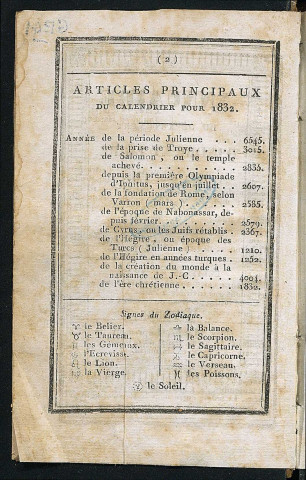 (2)
ARTICLES PRINCIPAUX
DU CALENDRIER POUR 1832.
ANNÉE de la période Julienne . . . 6545.
de la prise de Troye . . . . . . 3015.
de Salomon, ou le temple
achevé . . . . . . . . . . . . . 2835.
depuis la première Olympiade
d'Iphitus, jusqu'en juillet . . 2607.
de la fondation de Rome, selon
Varron (mars) . . . . . . . . 2585.
de l'époque de Nabonassar, de-
puis février . . . . . . . . . . 2579.
de Cyrus, ou les Juifs rétablis . 2367.
de l'Hégire, ou époque des
Turcs (Julienne) . . . . . . 1210.
de l'Hégire en années turques . 1252.
de la création du monde à la
naissance de J.-C. . . . . . . 4004.
de l'ère chrétienne . . . . . . 1832.
Signes du Zodiaque.
♈ le Belier. ♎ la Balance.
♉ le Taureau. ♏ le Scorpion.
♊ les Gémeaux. ♐ le Sagittaire.
♋ l'Ecrevisse. ♑ le Capricorne.
♌ le Lion. ♒ le Verseau.
♍ la Vierge. ♓ les Poissons.
le Soleil.